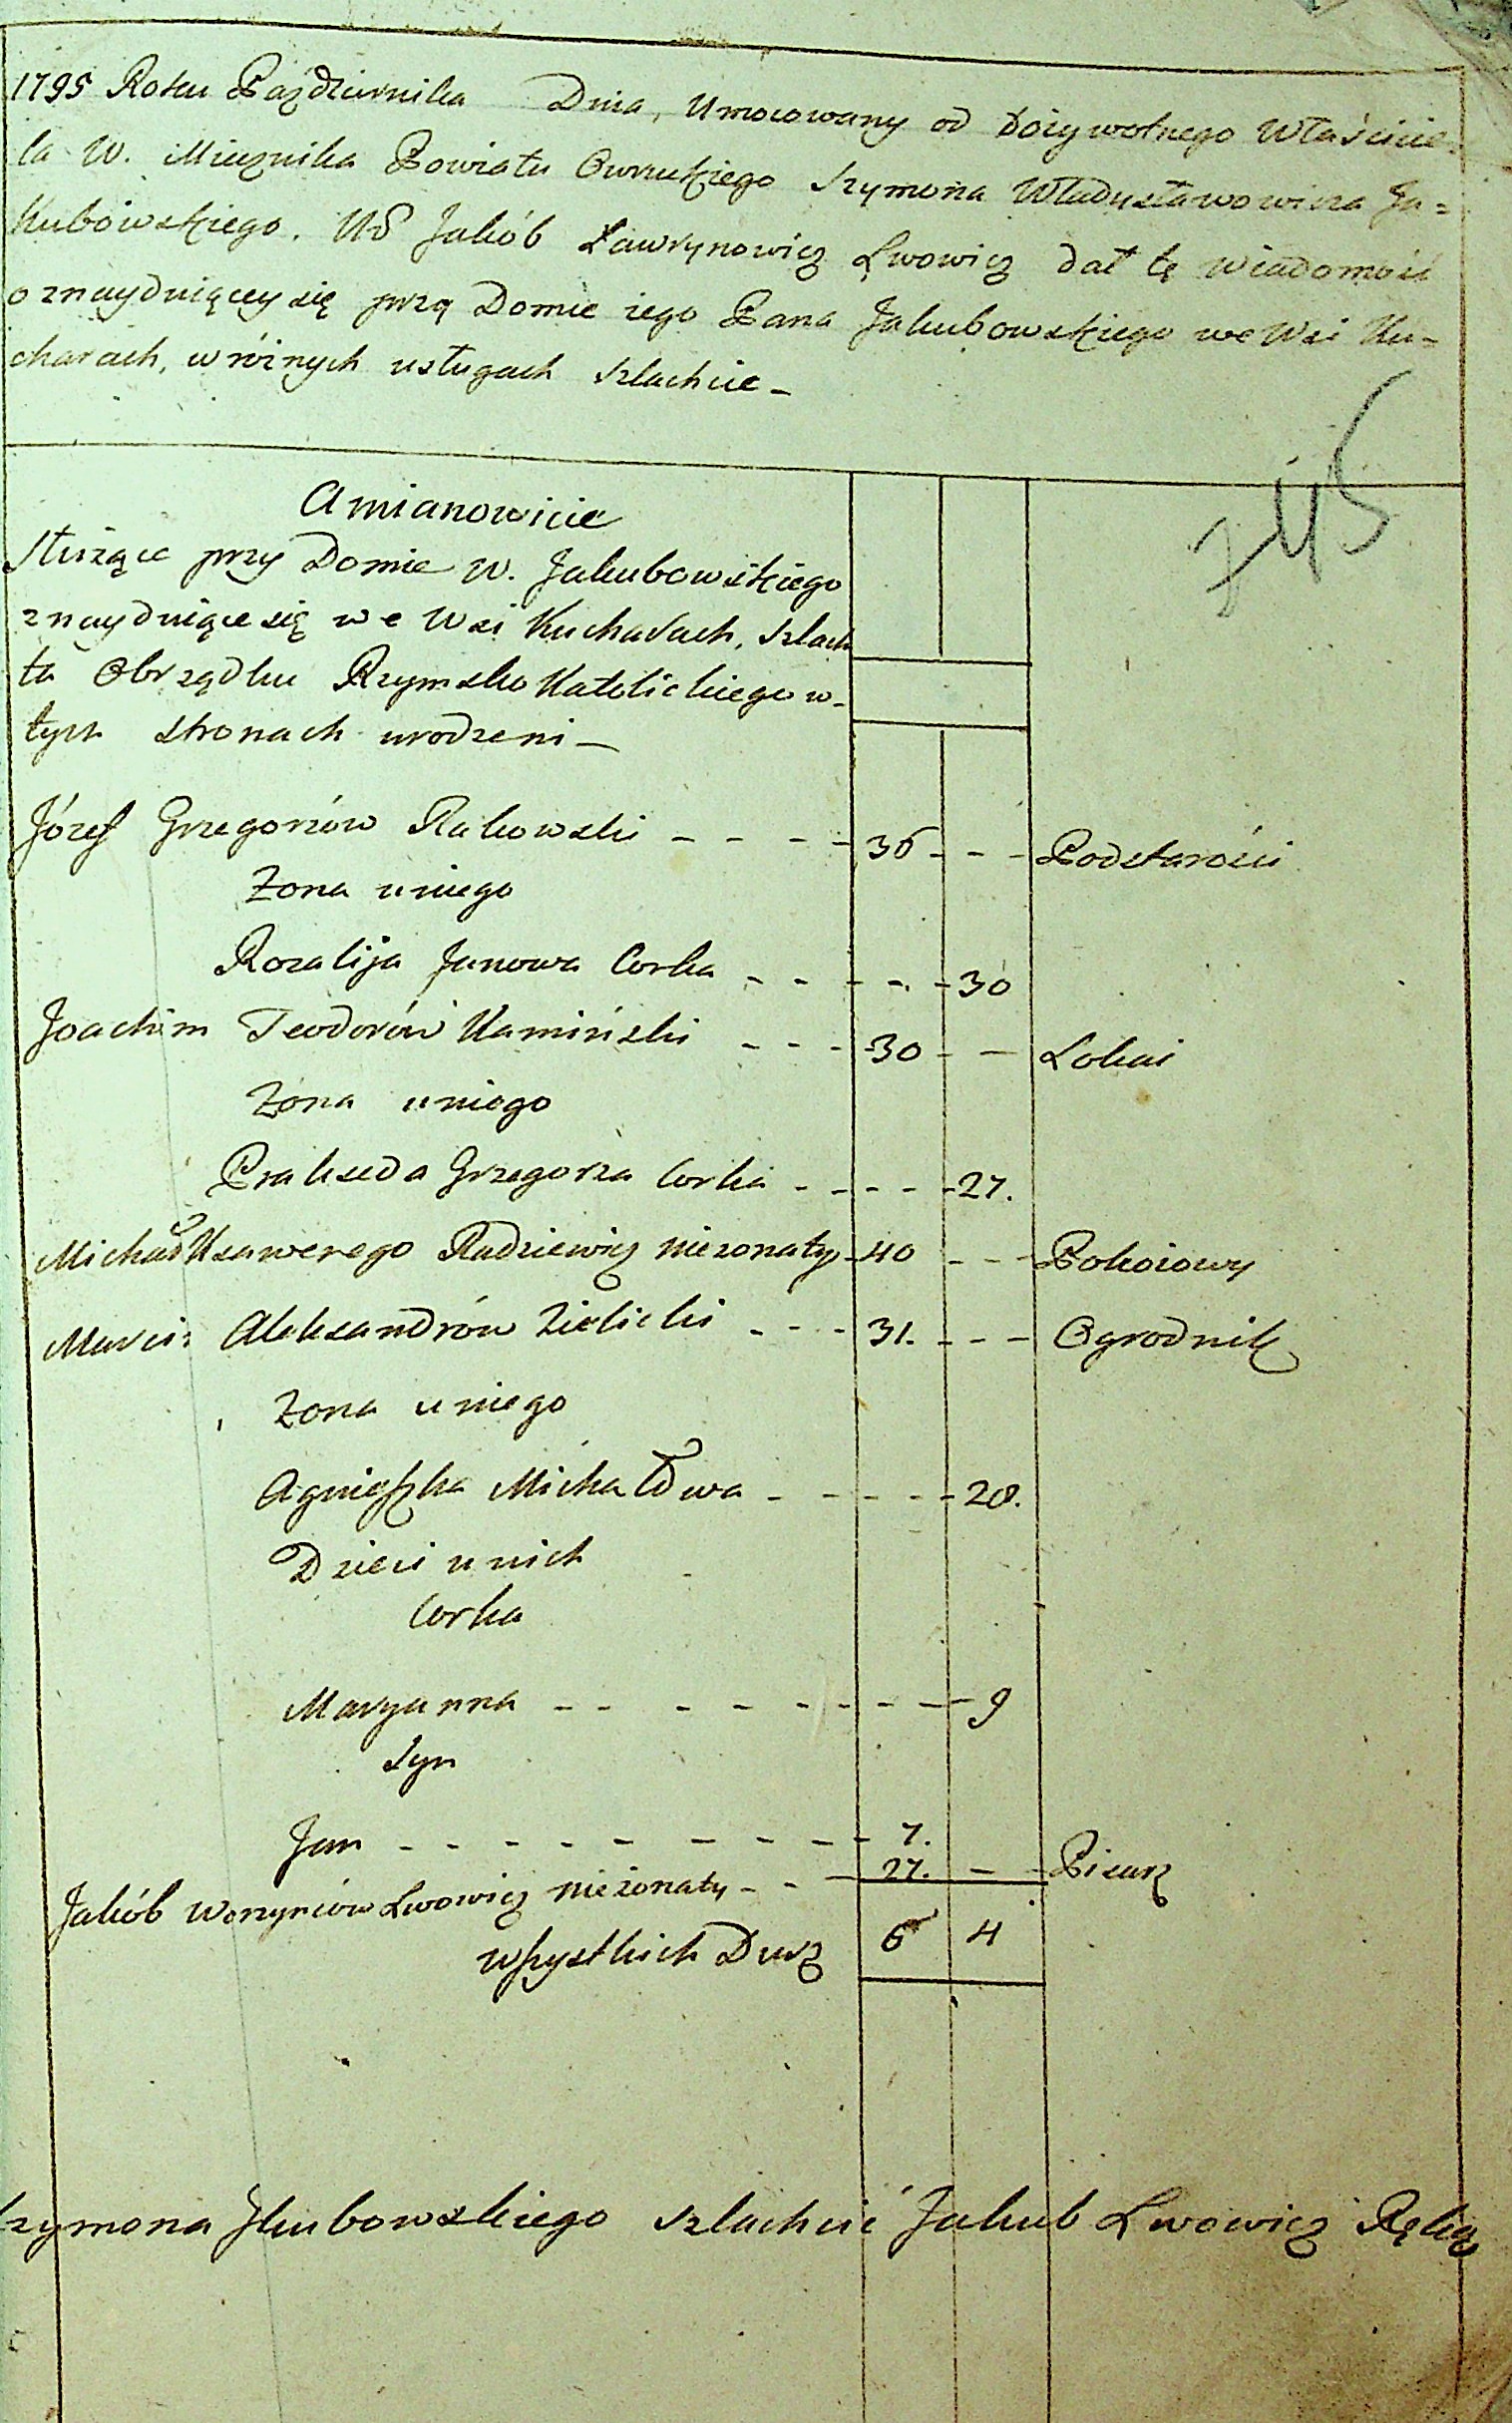 1795 Roku Października Dnia, Umocowany od Dożywotnego Właścicie=
la W. Miecznika Powiatu Owruckiego Szymona Władysławowicza Ja=
kubowskiego. Ur Jakób Ławrynowicz Lwowicz dał tę wiadomość
o znayduiącey się przy Domie iego Pana Jakubowskiego we Wsi Ku=
charach, w różnych usługach szlachcie_
745
A mianowicie
Służące przy Domie W. Jakubowskiego
znayduiące się we Wsi Kucharach, szlach
ta Obrządku Rzymsko Katolickiego w_
tych stronach urodzeni_
Józef Grzegorzów Rakowski - - - - 36 - - - Podstarości
Żona u niego
Rozalija Janowa Corka - - - - - 30
Joachim Teodorów Kamiński - - - 30 - - Lokai
Żona u niego
Prakseda Grzegorza Corka - - - - - 27.
Michał Ksawerego Radziewicz nieżonaty - 40 - - - Pokoiowy
Marcin Aleksandrów Zielicki - - - 31. - - - Ogrodnik
Żona u niego
Agnieszka Michałowa - - - - - 28.
Dzieci u nich
Corka
Maryanna - - - - - - - - - 9
Syn
Jan - - - - - - - - - 7.
Jakób Worzyńców Lwowicz nieżonaty - - - 27. - - Pisarz
wszystkich Dusz 6 4
Szymona Jkubowskiego szlachcic Jakub Lwowicz Ręką